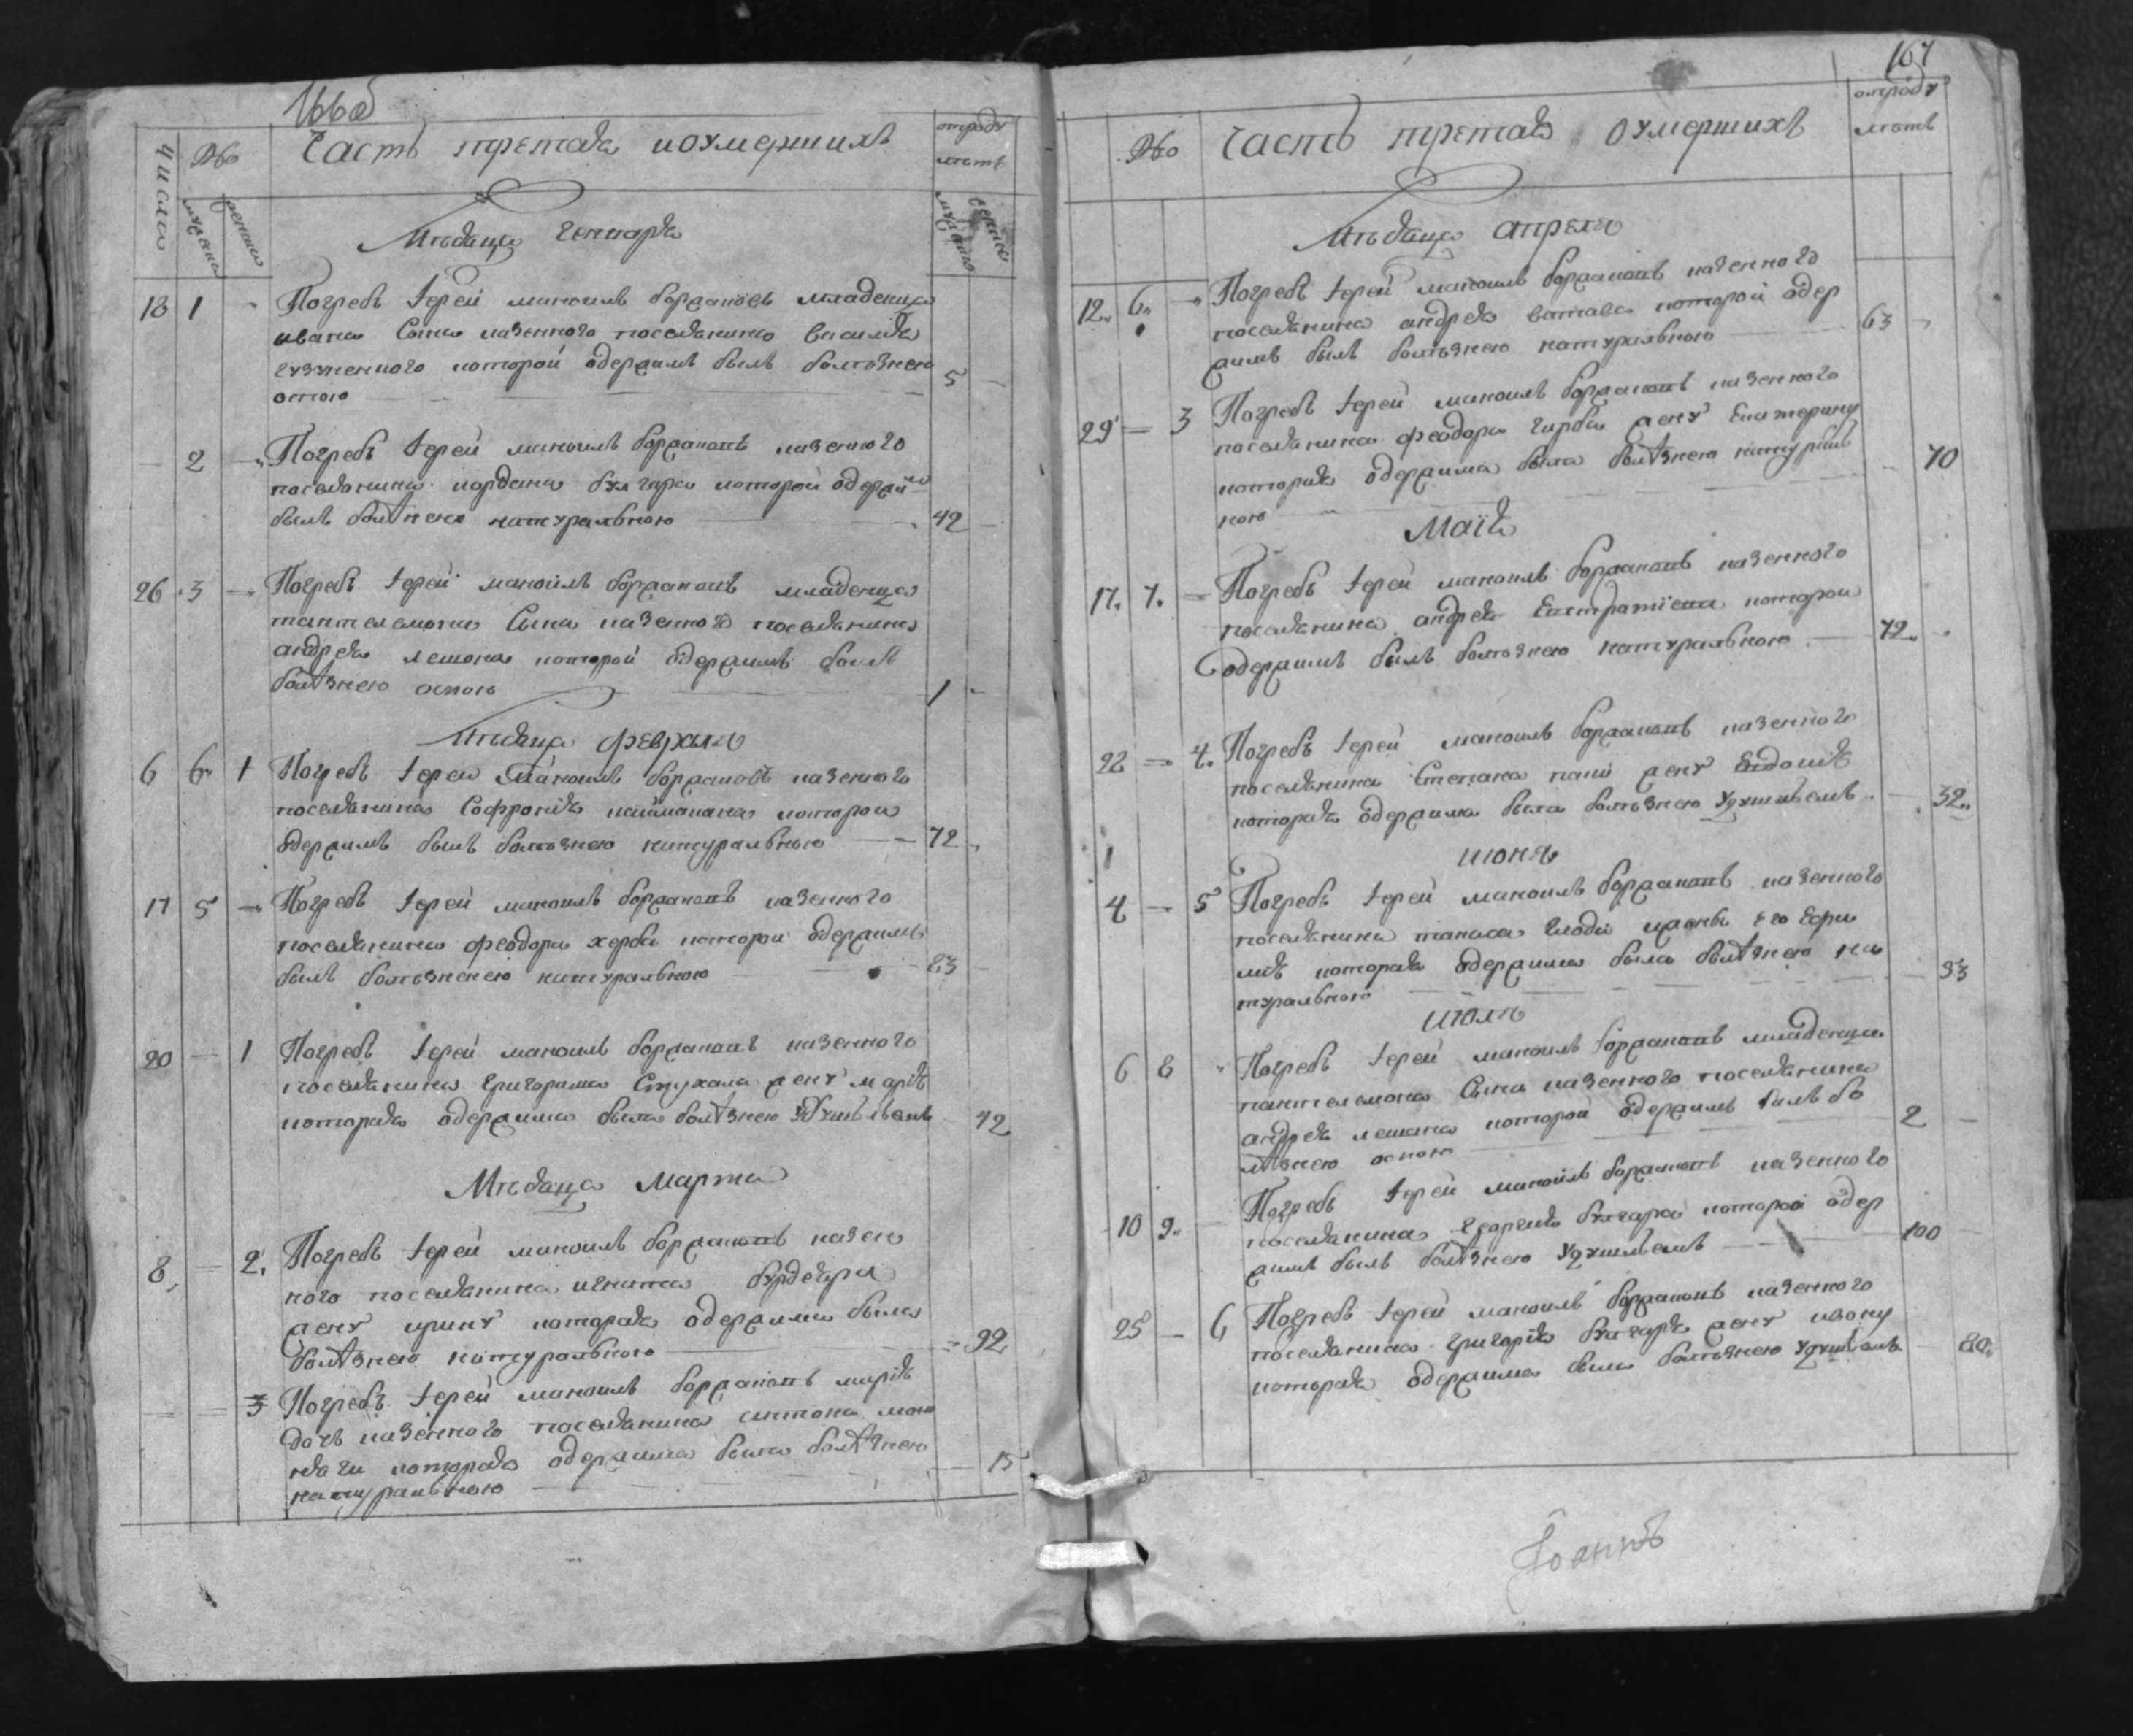 166об
числа № Часть третая иоумершихъ отроду летъ
мужеска женска мужеска женска
Месяца генъаря
18 1 Погребъ Іерей маноилъ боржаковъ младенца
ивана Сына казенного поселянина василия
которой одержимъ былъ болезнею
оспою 5
2 Погребъ Іерей маноилъ боржаковъ казенного
поселянина иордана булгара которой одержим
былъ болѣзнею натуральною 42
26 3 Погребъ Іерей маноилъ боржаковъ младенца
пантелемона Сына казенного поселянина
андрея лешана которой одержимъ былъ
болѣзнею оспою 1
Месяца февраля
6 6 1 Погребъ Іерей Маноилъ боржаковъ казенного
поселянина Софрония каймакана которой
одержимъ былъ болезнею натуральною 72
17 5 Погребъ Іерей маноилъ боржаковъ казенного
поселянина феодора херба которой одержимъ
былъ болезненею натуральною 83
20 1 Погребъ Іерей маноилъ боржаковъ казенного
поселянина григораша жену марію
которая одержима была болѣзнею удушьемъ 42
Месяца Марта
8 2 Погребъ Іерей маноилъ боржаковъ казен
ного поселянина игната
жену ирину которая одержима была
болѣзнею натуральною 92
3 Погребъ Іерей маноилъ боржаковъ марія
дочь казенного поселянина антона
которая одержима была болѣзнею
натуральною 15
167
№ Часть третая оумершихъ отроду летъ
Месяца априля
12 6 Погребъ Іерей маноилъ боржаковъ казенного
поселянина андрея которой одер
жимъ былъ болезнею натуральною 63
29 3 Погребъ Іерей маноилъ боржаковъ казенного
поселянина феодора жену Екатерину
которая одержима была болѣзнею натураль
ною 70
Маія
17 7 Погребъ Іерей маноилъ боржаковъ казенного
поселянина андрея Евстратіева которой
одержимъ былъ болезнею натуральною 72
22 4 Погребъ Іерей маноилъ боржаковъ казенного
поселянина Степана жену
которая одержима была болезнею удушьемъ 32
июня
4 5 Погребъ Іерей маноилъ боржаковъ казенного
поселянина танаса его
которая одержима была болѣзнею на
туральною 93
июля
6 8 Погребъ Іерей маноилъ боржаковъ младенца
пантелемона Сына казенного поселянина
андрея лешана которой одержимъ былъ бо
лѣзнею оспою 2
10 9 Погребъ Іерей маноилъ боржаковъ казенного
поселянина георгия булгара которой одер
жимъ былъ болѣзнею удушьемъ 100
25 6 Погребъ Іерей маноилъ боржаковъ казенного
поселянина григорія булгара жену
которая одержима была болезнею удушьемъ 80
Іоаннъ